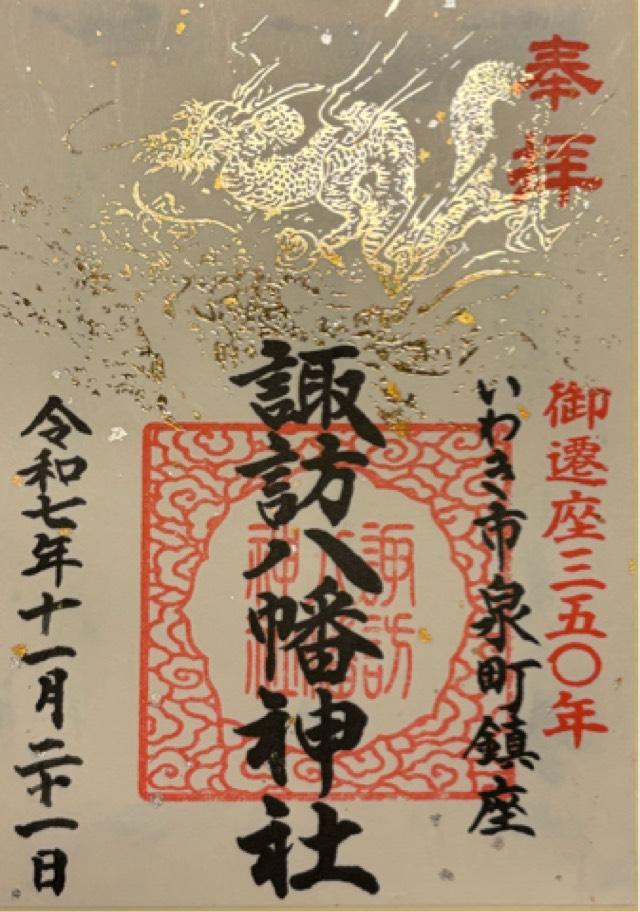 奉拝
御遷座三五〇年
いわき市泉町鎮座
諏訪八幡神社
諏訪
神社
令和七年十一月二十一日